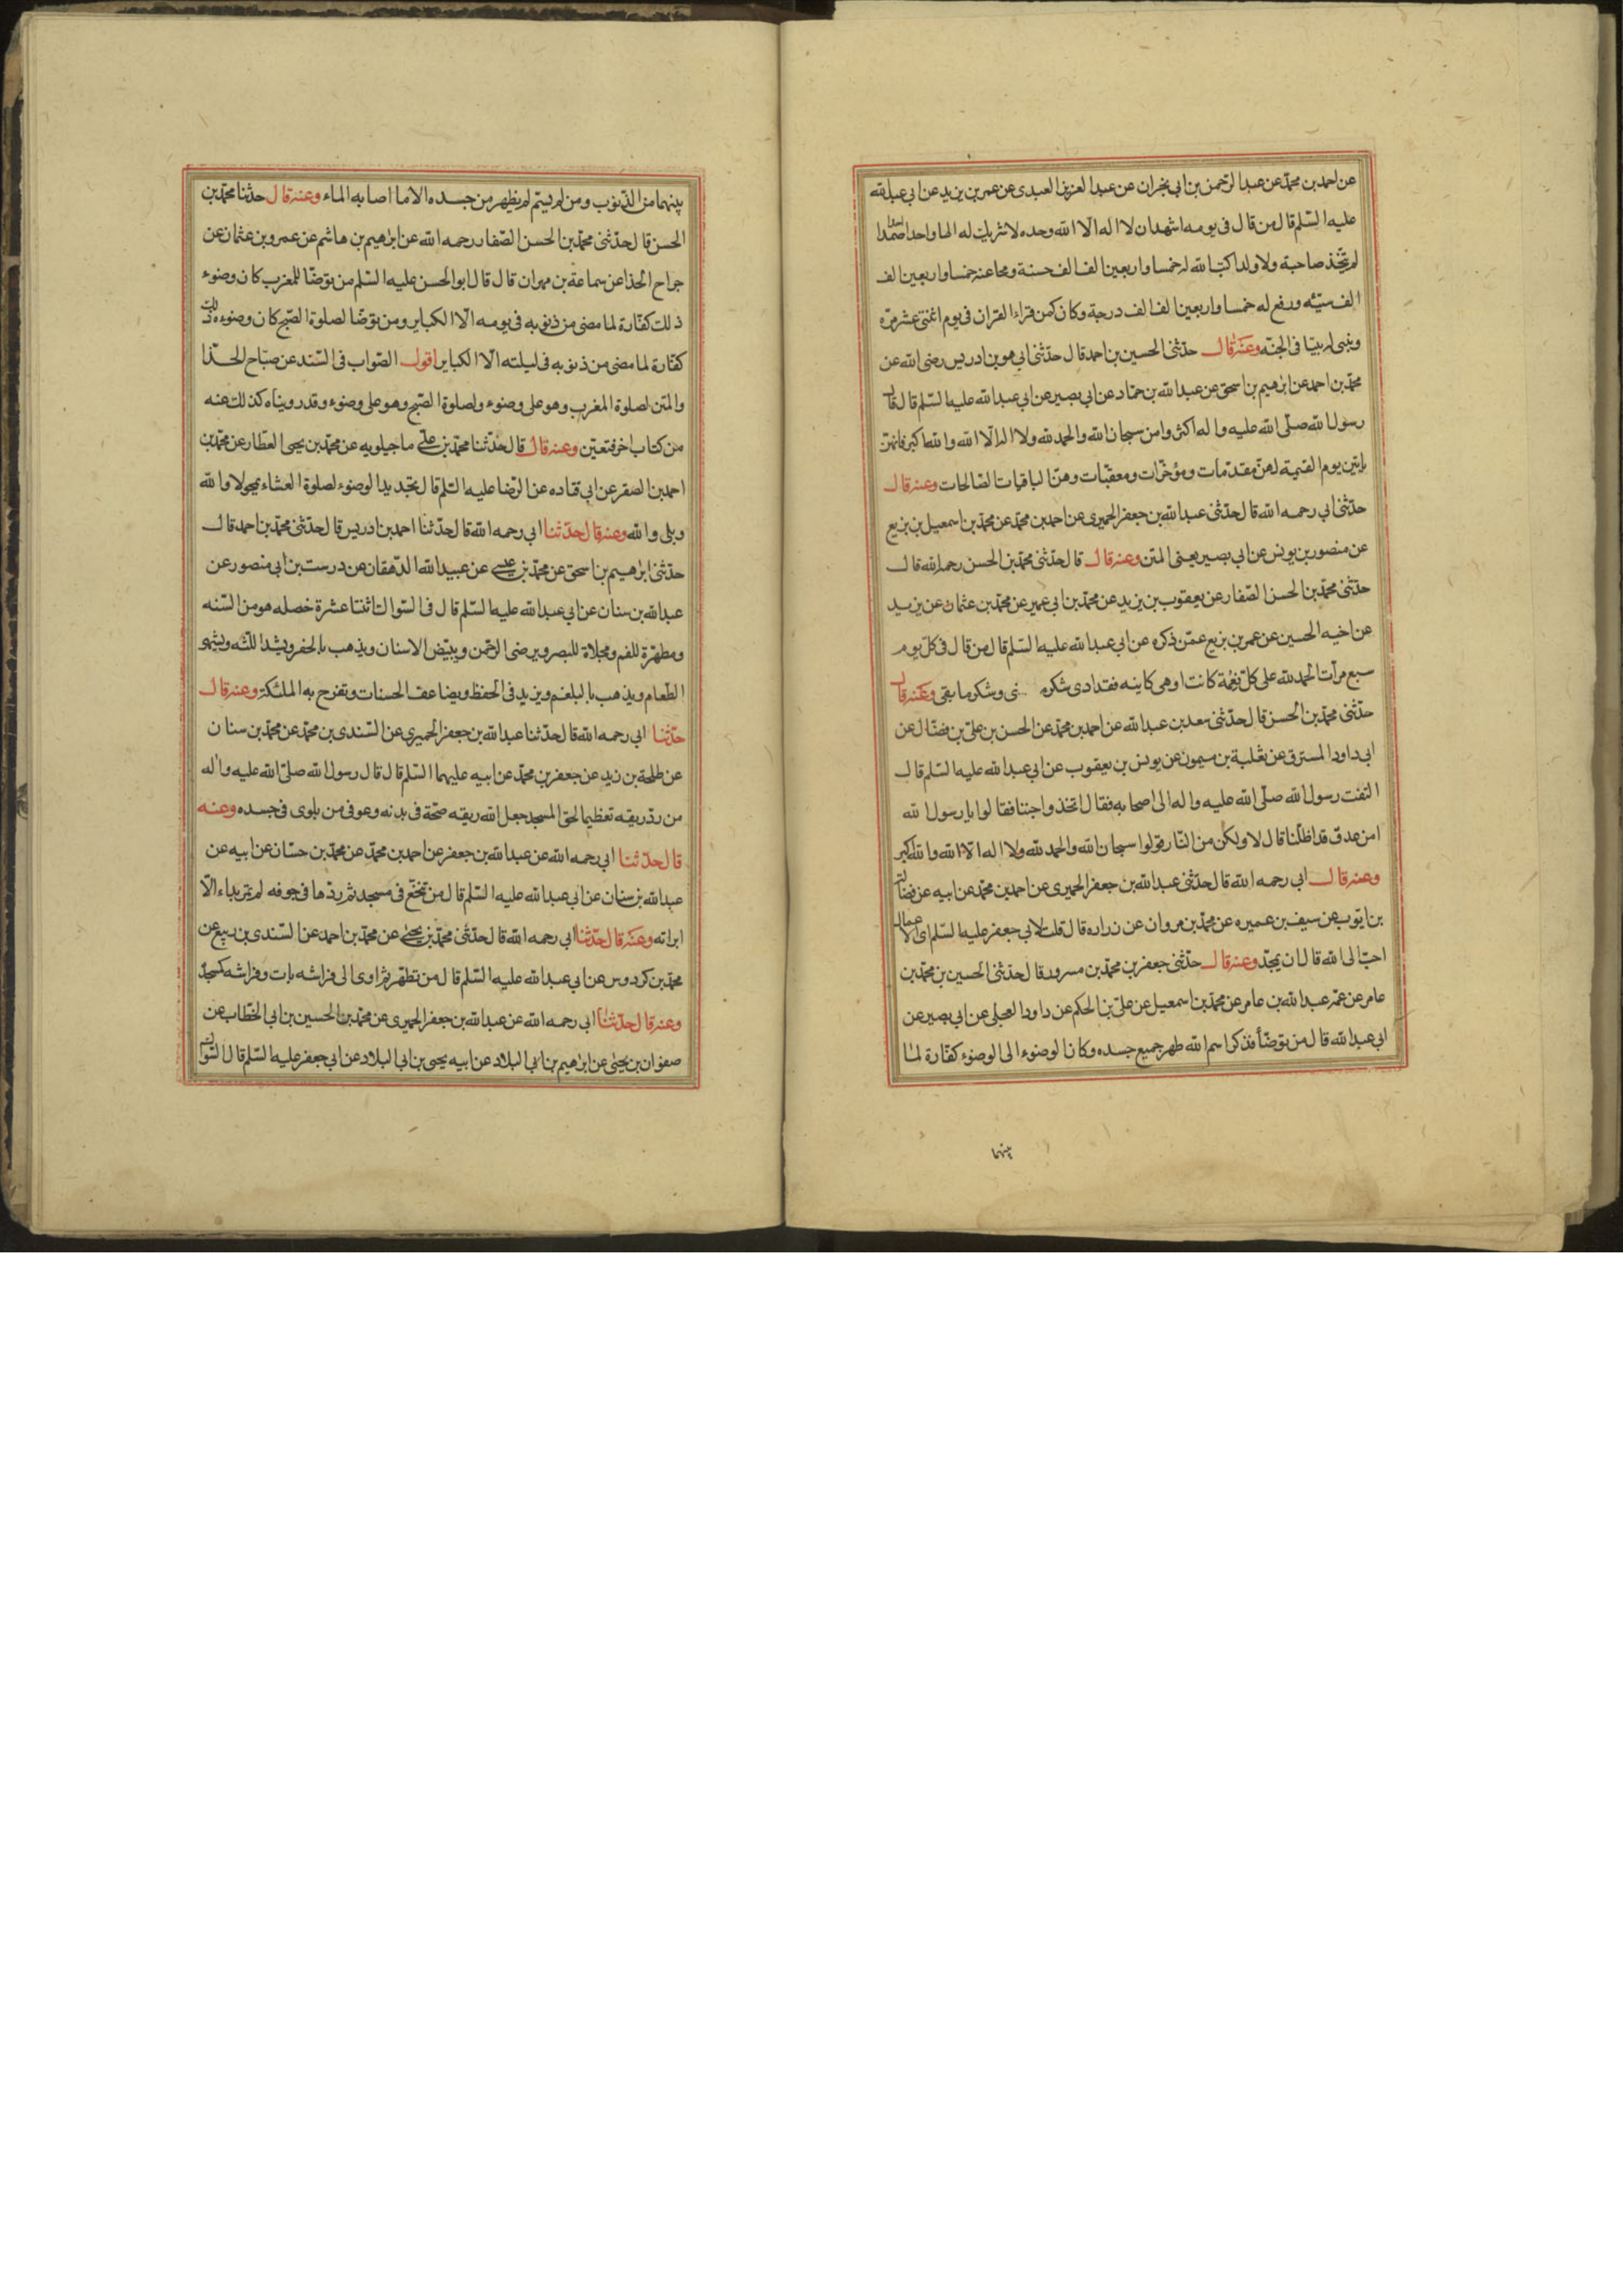 عن احمد بن محمد عن عبد الرحمن بن ابي نجران عن عبد العزيز العبدى عن عمر بن يزيد عن ابي عبد الله
عليه السلم قال من قال في يومه اشهد ان لا اله الا الله وحده لا شريك له الها واحدا احدا صمدا
لم يتخذ صاحبة ولا ولدا كتب الله له خمسا واربعين الف الف حسنة ومحا عنه خمسا واربعين الف
الف سيئه ورفع له خمسا واربعين الف الف درجة وكان كمن قراء القران في يوم اثنتى عشر مرة
وبنى له بيتا في الجنه وعنه قال حدثنى الحسين بن احمد قال حدثنى ابي هو بن ادريس رضى الله عن
محمد بن احمد عن ابرهيم بن اسحق عن عبد الله بن حماد عن ابي بصير عن ابي عبد الله عليه السلم قال قال
رسول الله صلى الله عليه واله اكثروا من سبحان الله والحمد لله ولا اله الا الله والله اكبر فانهن
ياتين يوم القيمة لهن مقدمات ومؤخرات ومعقبات وهن الباقيات الصالحات وعنه قال
حدثنى ابي رحمه الله قال حدثنى عبد الله بن جعفر الحميرى عن احمد بن محمد عن محمد بن اسمعيل بن بزيع
عن منصور بن يونس عن ابي بصير يعنى المتن وعنه قال قال حدثنى محمد بن الحسن رحمه الله قال
حدثنى محمد بن الحسن الصفار عن يعقوب بن يزيد عن محمد بن ابي عمير عن محمد بن عثمان عن يزيد
عن اخيه الحسين عن عمر بن بزيع عمن ذكره عن ابي عبد الله عليه السلم قال من قال في كل يوم
سبع مرات الحمد لله على كل نعمة كانت او هى كاينه فقد ادى شكر وشكر ما بقى وعنه قال
حدثنى محمد بن الحسن قال حدثنى سعد بن عبد الله عن احمد بن محمد عن الحسن بن على بن فضال عن
ابي داود المسترق عن ثعلبة بن ميمون عن يونس بن يعقوب عن ابي عبد الله عليه السلم قال
التفت رسول الله صلى الله عليه واله الى اصحابه فقال اتخذوا جننا فقالوا يا رسول الله
امن عدو قد اظلنا قال لا ولكن من النار قولوا سبحان الله والحمد لله ولا اله الا الله والله اكبر
وعنه قال ابي رحمه الله قال حدثنى عبد الله بن جعفر الحميرى عن احمد بن محمد عن ابيه عن فضالة
بن ايوب عن سيف بن عميره عن محمد بن مروان عن زراره قال قلت لابي جعفر عليه السلم اى الاعمال
احب الى الله قال ان يمجد وعنه قال حدثنى جعفر بن محمد بن مسرور قال حدثنى الحسين بن محمد بن
عامر عن عمه عبد الله بن عامر عن محمد بن اسمعيل عن على بن الحكم عن داود العجلى عن ابي بصير عن
ابي عبد الله قال من توضأ فذكر اسم الله طهر جميع جسده وكان الوضوء الى الوضوء كفارة لما
بينهما
بينهما من الذنوب ومن لم يسم لم يطهر من جسده الا ما اصابه الماء وعنه قال حدثنا محمد بن
الحسن قال حدثنى محمد بن الحسن الصفار رحمه الله عن ابرهيم بن هاشم عن عمرو بن عثمان عن
جراح الحذا عن سماعة بن مهران قال قال ابو الحسن عليه السلم من توضا للمغرب كان وضوء
ذلك كفارة لما مضى من ذنوبه في يومه الا الكباير ومن توضا لصلوة الصبح كان وضوءه ذلك
كفارة لما مضى من ذنوبه في ليلته الا الكباير اقول الصواب في السند عن صباح الحذا
والمتن لصلوة المغرب وهو على وضوء ولصلوة الصبح وهو على وضوء وقد رويناه كذلك عنه
من كتاب اخر فتعين وعنه قال قال حدثنا محمد بن على ماجيلويه عن محمد بن يحيى العطار عن محمد بن
احمد بن الصقر عن ابي قتاده عن الرضا عليه السلم قال تجديد الوضوء لصلوة العشاء يمحو لا والله
وبلى والله وعنه قال حدثنا ابي رحمه الله قال حدثنا احمد بن ادريس قال حدثنى محمد بن احمد قال
حدثنى ابرهيم بن اسحق عن محمد بن عيسى عن عبيد الله الدهقان عن درست بن ابي منصور عن
عبد الله بن سنان عن ابي عبد الله عليه السلم قال في السواك اثنتا عشرة خصله هو من السنه
ومطهرة للفم ومجلاة للبصر ويرضى الرحمن ويبيض الاسنان ويذهب بالحفر ويشد اللثه ويشهى
الطعام ويذهب بالبلغم ويزيد في الحفظ ويضاعف الحسنات وتفرح به الملئكة وعنه قال
حدثنا ابي رحمه الله قال حدثنا عبد الله بن جعفر الحميرى عن السندى بن محمد عن محمد بن سنان
عن طلحة بن زيد عن جعفر بن محمد عن ابيه عليهما السلم قال قال رسول الله صلى الله عليه واله
من رد ريقه تعظيما لحق المسجد جعل الله ريقه صحة في بدنه وعوفى من بلوى في جسده وعنه
قال حدثنا ابي رحمه الله عن عبد الله بن جعفر عن احمد بن محمد عن محمد بن حسان عن ابيه عن
عبد الله بن سنان عن ابي عبد الله عليه السلم قال من تنخع في مسجد ثم ردها في جوفه لم تمر بداء الا
ابراته وعنه قال حدثنا ابي رحمه الله قال حدثنى محمد بن يحيى عن محمد بن احمد عن السندى بن ربيع عن
محمد بن كردوس عن ابي عبد الله عليه السلم قال من تطهر ثم اوى الى فراشه بات وفراشه كمسجده
وعنه قال حدثنا ابي رحمه الله عن عبد الله بن جعفر الحميرى عن محمد بن الحسين بن ابي الخطاب عن
صفوان بن يحيى عن ابرهيم بن ابي البلاد عن ابيه يحيى بن ابي البلاد عن ابي جعفر عليه السلم قال السواك